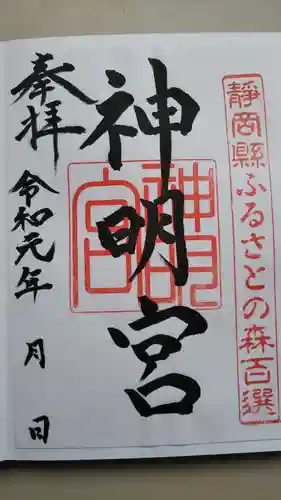 静岡縣ふるさとの森百選
神明宮
神明宮
奉拝
令和元年 月 日